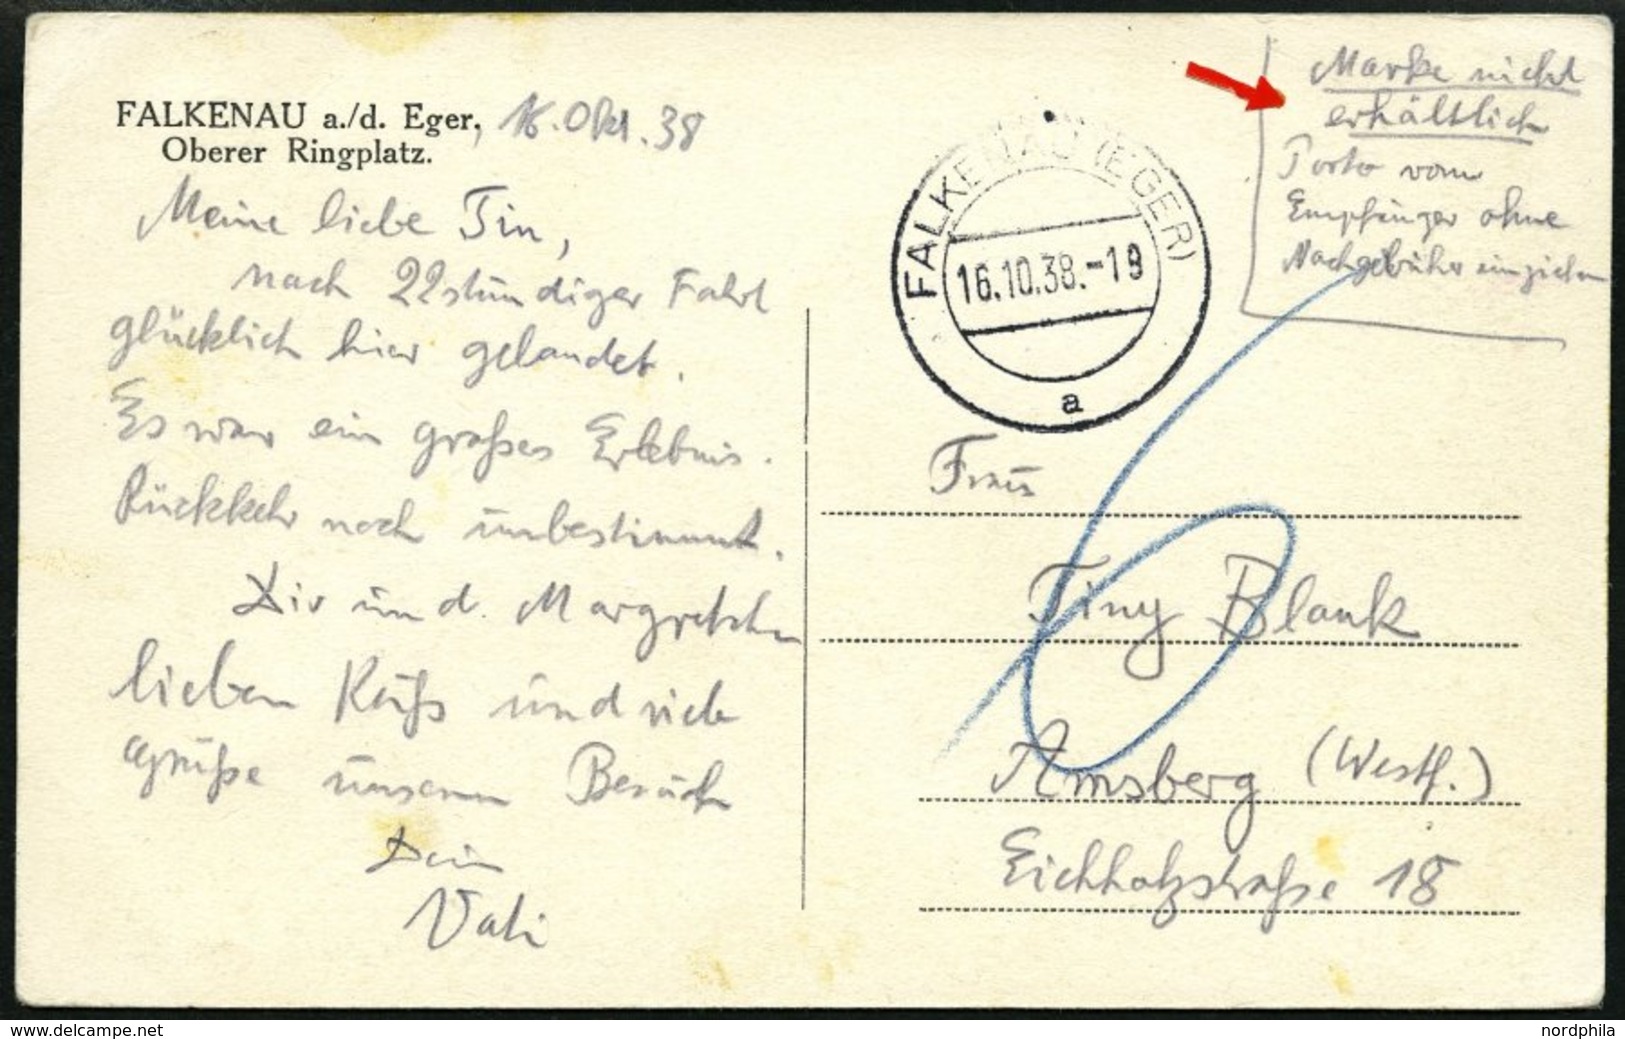 FALKENAU a./d. Eger, 16. Okt. 38
Oberer Ringplatz.
Meine liebe Tin,
nach 22stündiger Fahrt
glücklich hier gelandet.
Es war ein großes Erlebnis.
Rückkehr noch unbestimmt.
Dir und Margretchen
lieben Kuß und viele
Grüße unserm Besuch
Dein
Vati
Marke nicht
erhältlich
Porto vom
Empfänger ohne
Nachgebühr einziehen
FALKENAU (EGER)
16.10.38.-19
a
6
Frau
Tiny Blank
Arnsberg (Westf.)
Eichholzstraße 18
www.delcampe.net
nordphila